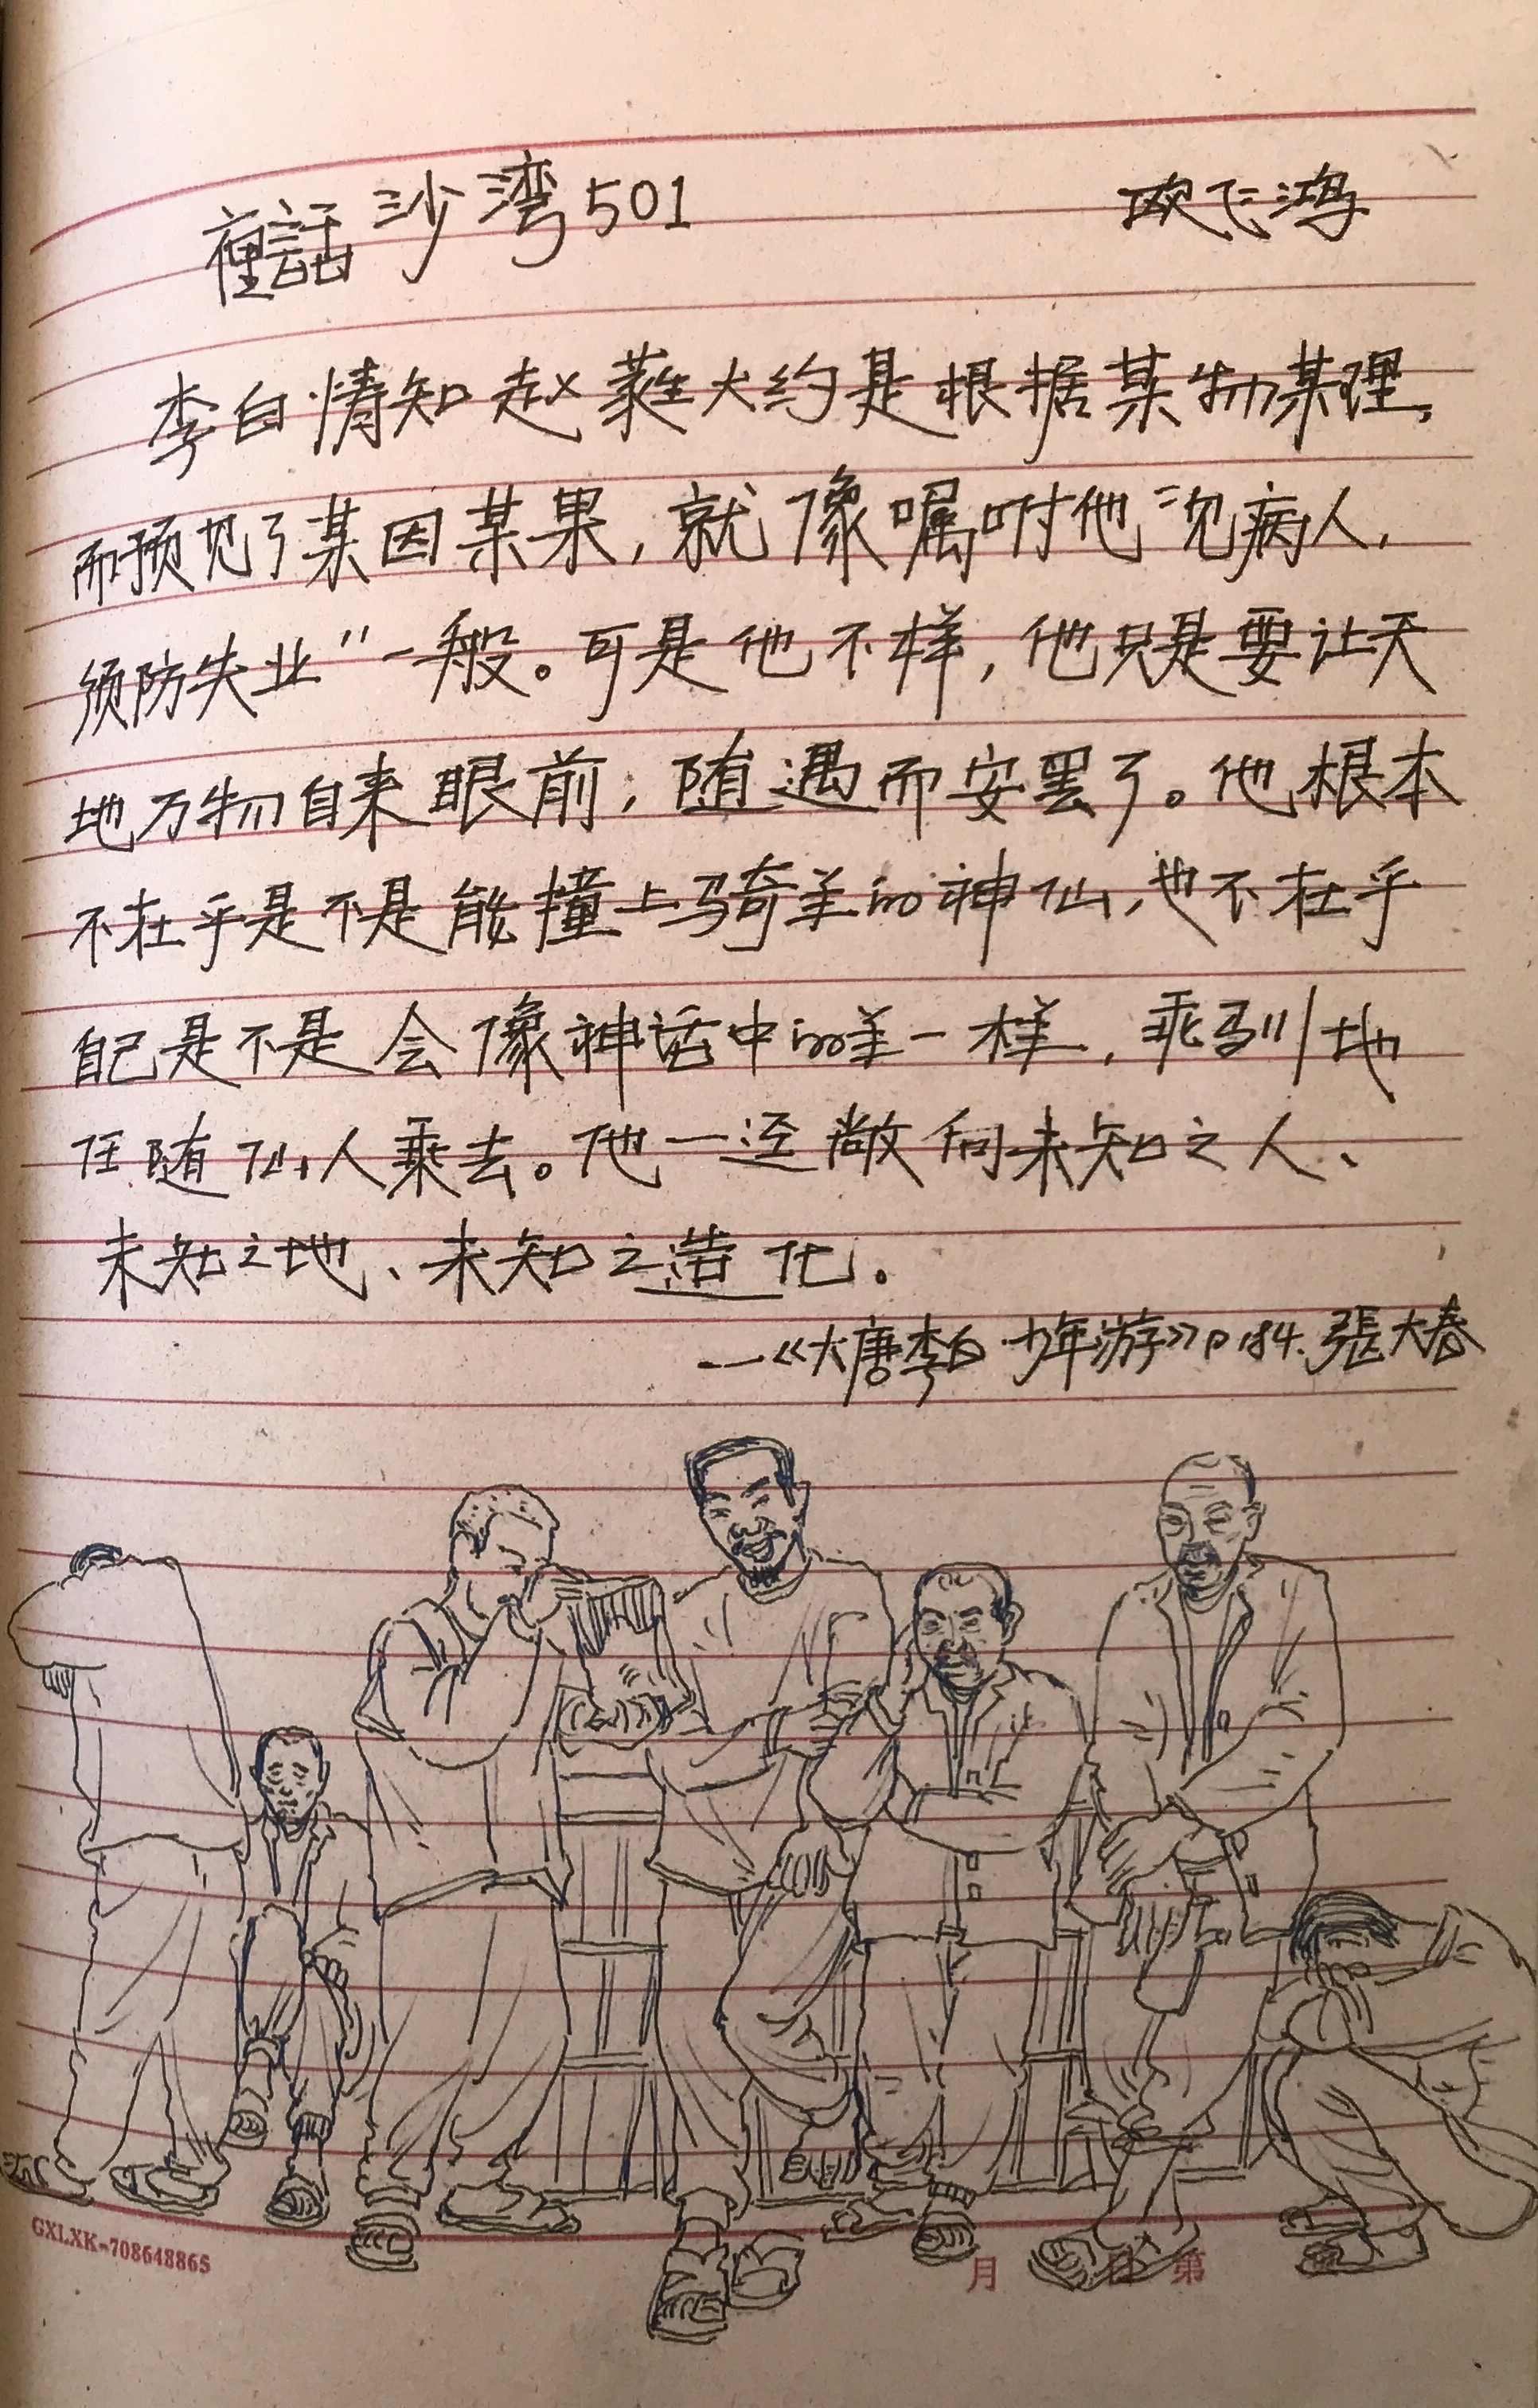 夜話沙湾501 欧飞鸿
李白情知赵蕤大约是根据某物某理,
而预见了某因某果,就像嘱咐他"沈病人,
预防失业"一般。可是他不样,他只是要让天
地万物自来眼前,随遇而安罢了。他根本
不在乎是不是能撞上骑羊的神仙,也不在乎
自己是不是会像神话中的羊一样,乖驯地
任随仙人乘去。他一迳敞向未知之人、
未知之地、未知之造化。
——《大唐李白·少年游》P184.張大春
GXLXK-708648865
月 日 第